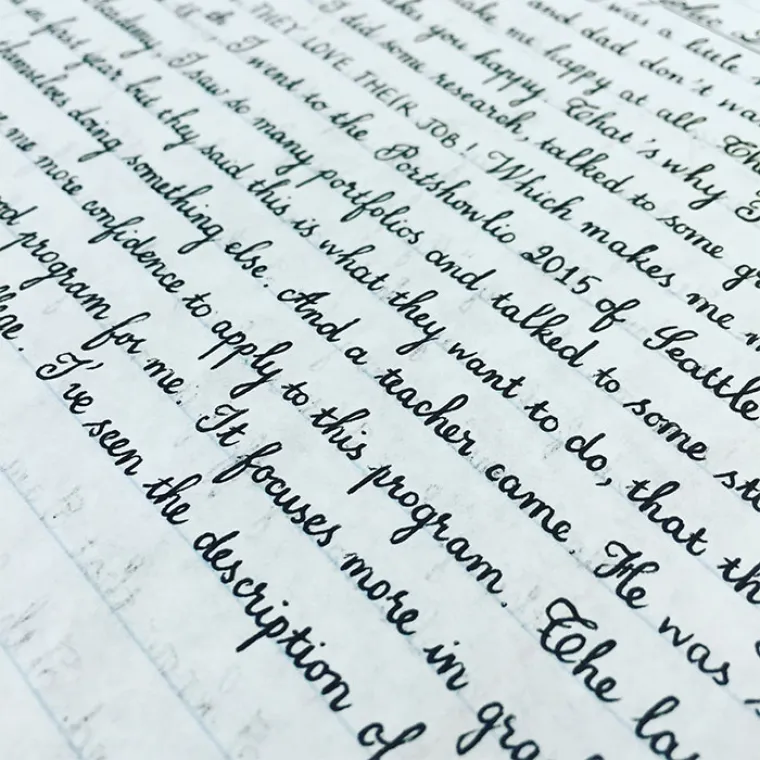 was a little
and dad don't
make me happy at all.
you happy. That's why I
I did some research, talked to some
THEY LOVE THEIR JOB! Which makes me
I went to the Portshowlio 2015 of Seattle
I saw so many portfolios and talked to some
first year but they said this is what they want to do, that
themselves doing something else. And a teacher came. He was
me more confidence to apply to this program. The
program for me. It focuses more in
I've seen the description of